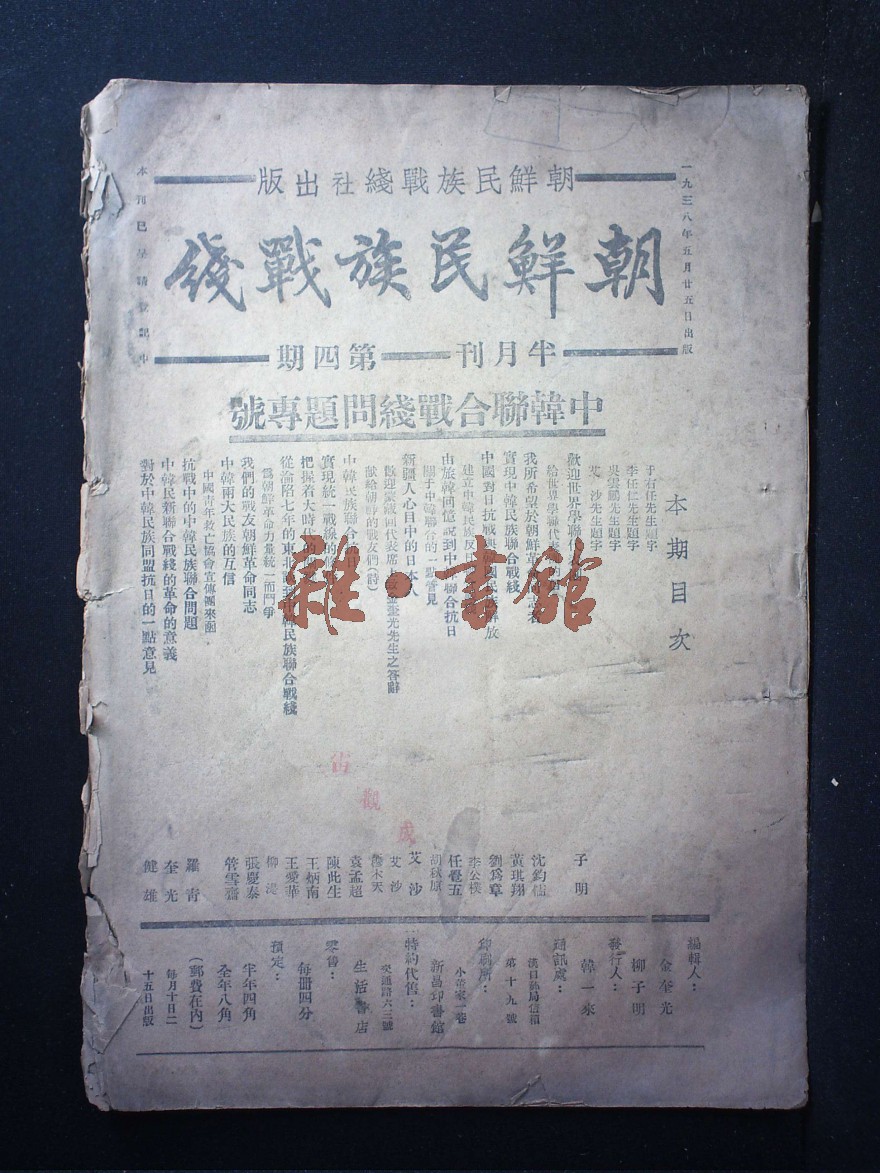 一九三八年五月廿五日出版
朝鮮民族戰綫社出版
朝鮮民族戰綫
半月刊 第四期
中韓聯合戰綫問題專號
本期目次
于右任先生題字
李任仁先生題字
吳雲鵬先生題字
艾沙先生題字
歡迎世界學聯代
給世界學聯代表
我所希望於朝鮮革
實現中韓民族聯合戰綫
中國對日抗戰與
建立中韓民族反
由旅韓回憶說到中韓聯合抗日
關于中韓聯合的一點管見
新疆人心目中的日本人
歡迎蒙藏回代表席 金奎光先生之答辭
獻給朝鮮的戰友們(詩)
中韓民族聯合
實現統一戰線的
把握着大時代的
從淪陷七年的東北 中韓民族聯合戰綫
爲朝鮮革命力量統一而鬥爭
我們的戰友朝鮮革命同志
中韓兩大民族的互信
中國青年救亡協會宣傳團來函
抗戰中的中韓民族聯合問題
中韓民新聯合戰綫的革命的意義
對於中韓民族同盟抗日的一點意見
子明
沈鈞儒
黃琪翔
劉爲章
李公樸
任覺五
胡秋原
艾沙
艾沙
穆木天
袁孟超
陳此生
王炳南
王愛華
柳湜
張慶泰
管雪齋
羅青
奎光
健雄
編輯人：
金奎光
柳子明
發行人：
韓一來
通訊處：
漢口郵局信箱
第十九號
印刷所：
小董家一巷
新昌印書館
特約代售：
交通路六三號
生活書店
零售：
每冊四分
預定：
半年四角
全年八角
(郵費在內)
每月十日二
十五日出版
雜·書館